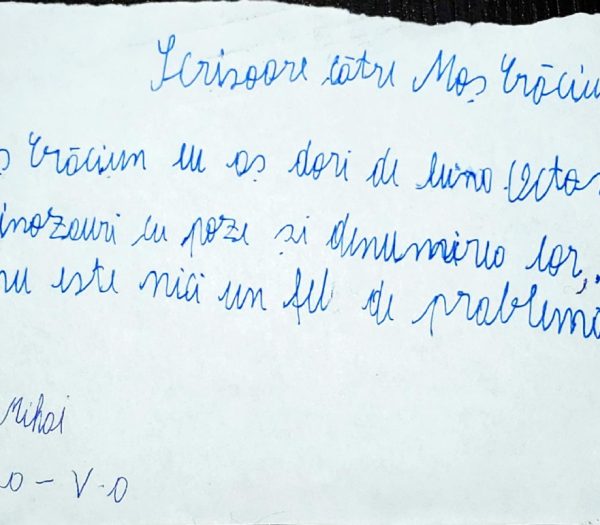 Scrisoare către Moș Crăciun
ș Crăciun eu aș dori de
inozauri cu poze și denumirea lor,
nu este nici un fel de problemă
Mihai
a - V-a